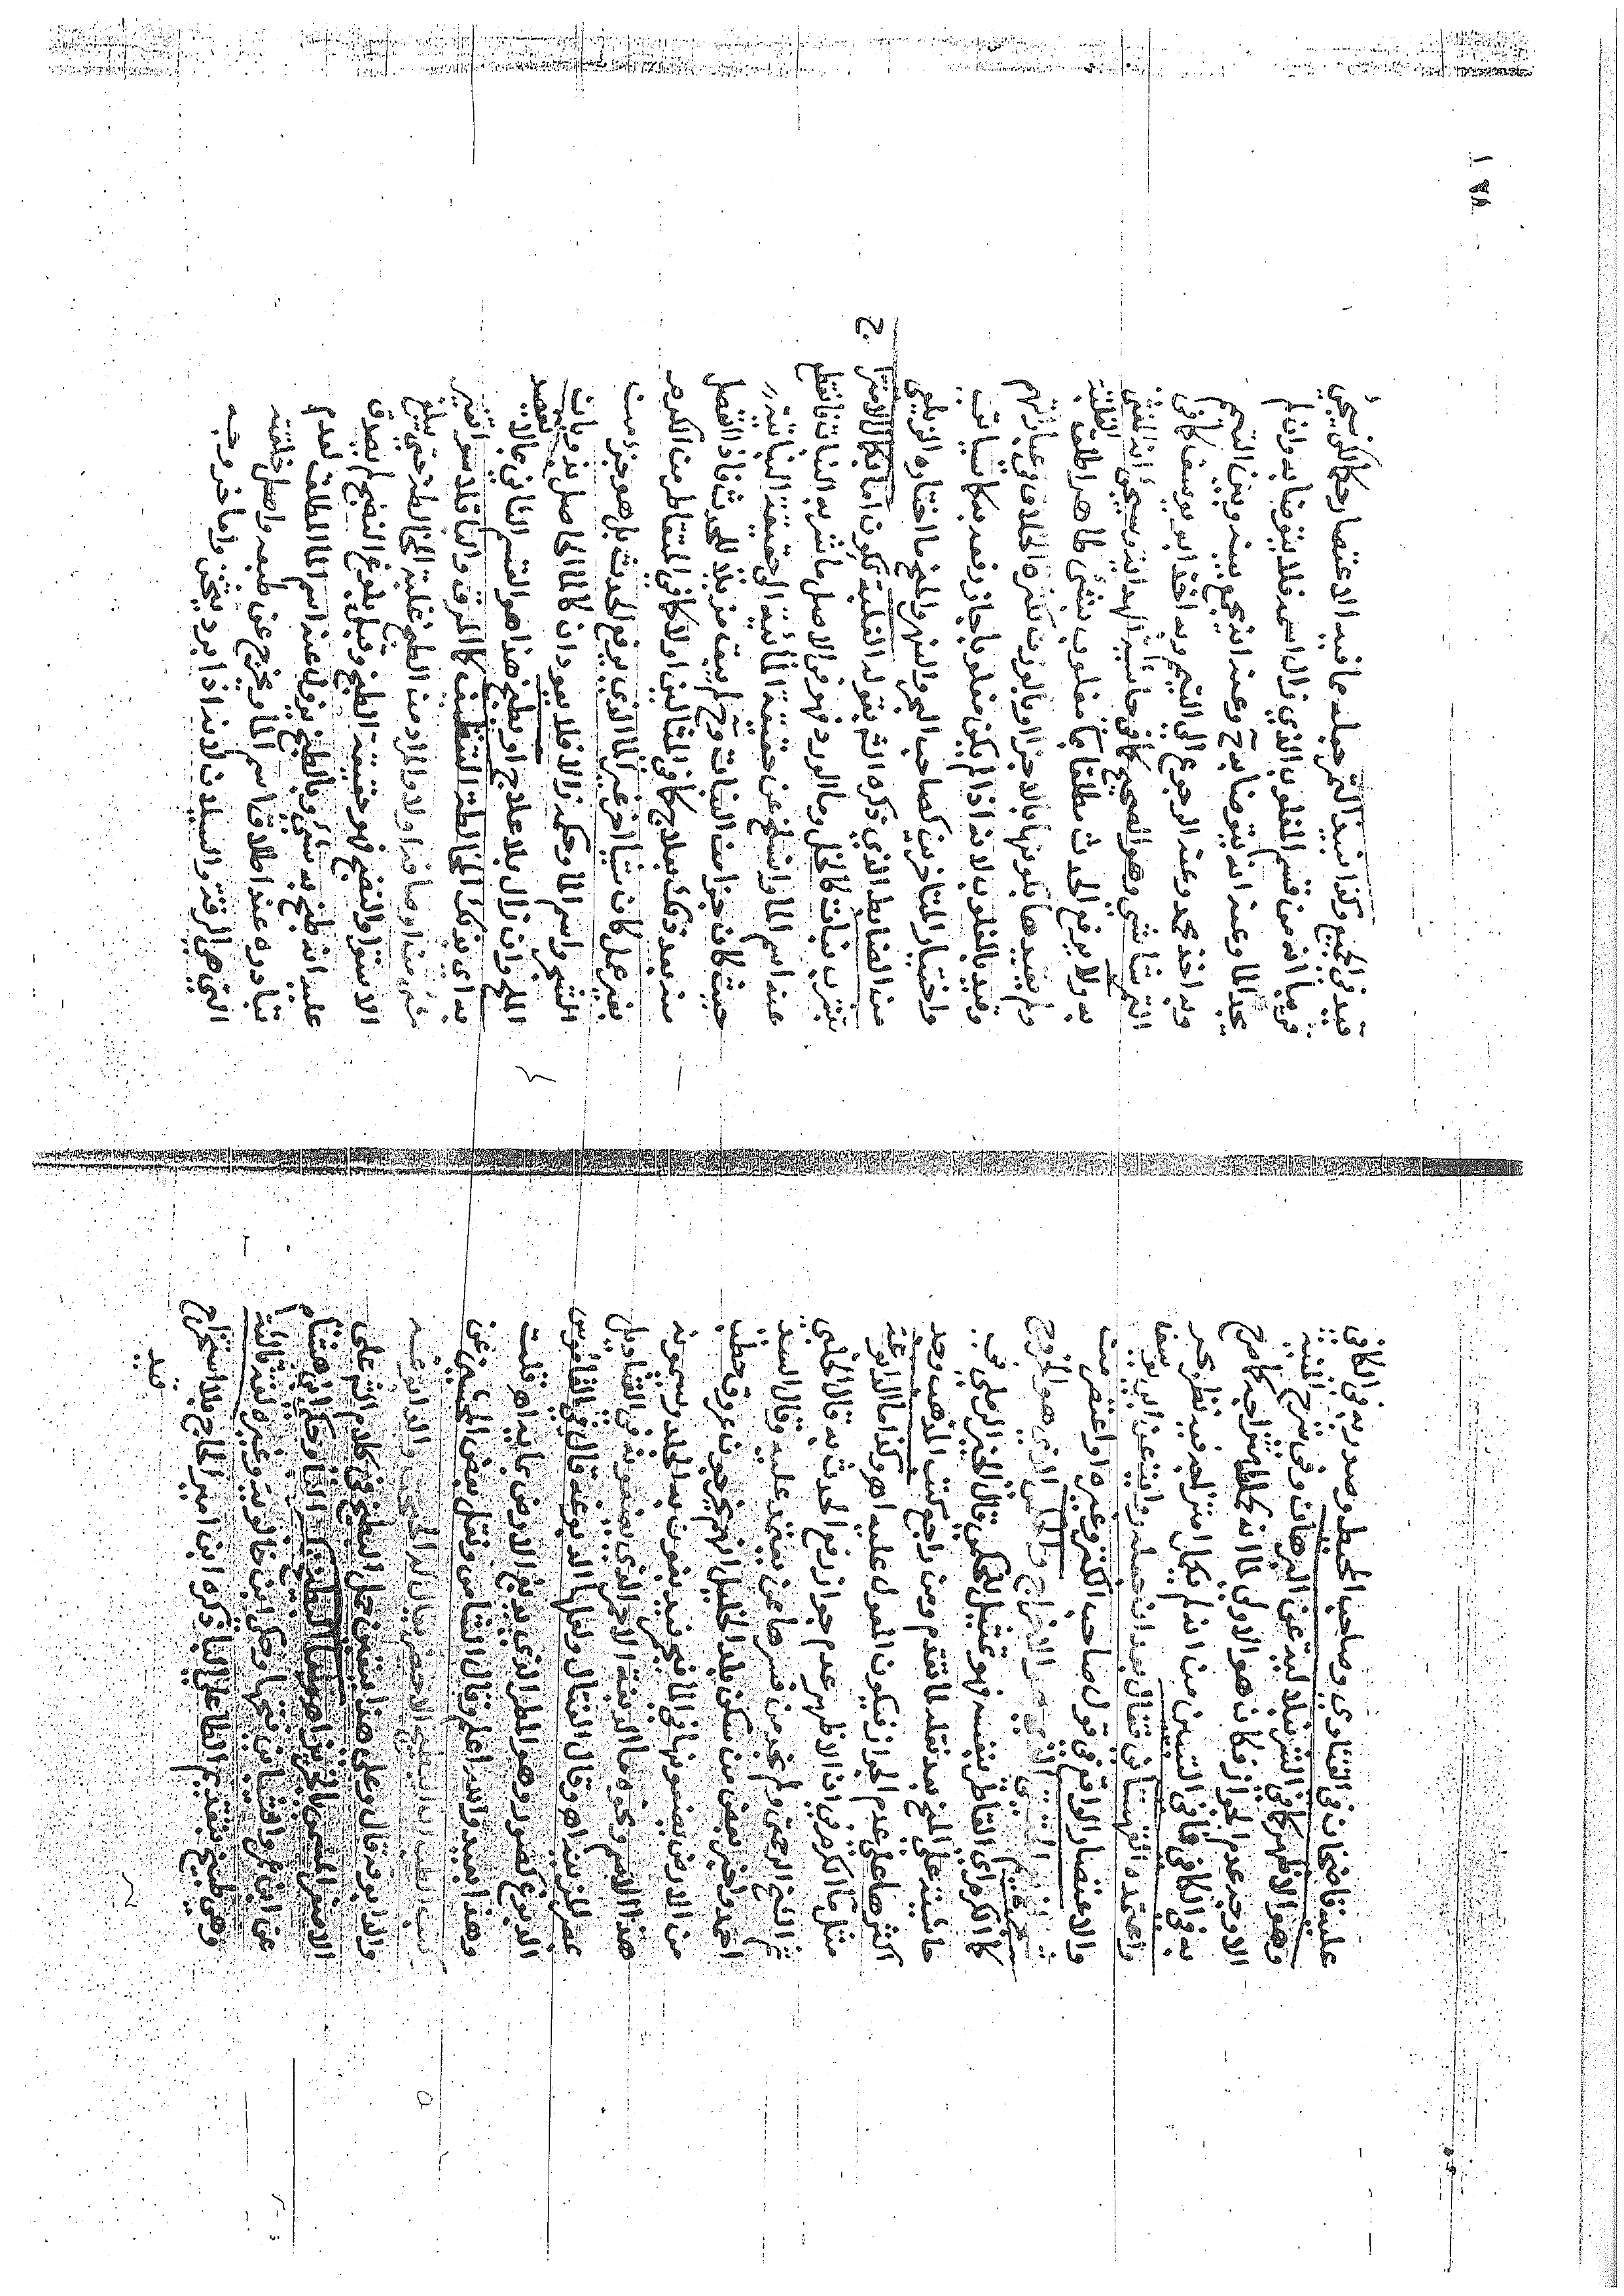 ١٩٨
عليه قاضيخان في الفتاوي وصاحب المحيط وصدر به في الكافي
وهو الاظهر كما في الشرنبلالية عن البرهان وفي شرح المنية
الاوجه عدم الجواز فكان هو الاولى لما انه كمل امتزاجه كما صرح
به في الكافي فما في التبيين من انه لم يكمل امتزاجه ففيه نظر بحر
واعتمده القهستاني فقال بعد ان جعله رواية عن ابي يوسف
والاعتصار الواقع في قول صاحب الكنز وغيره او اعتصر من
شجر
كالكرم اي القاطر بنفسه فهو تمثيل للمنفي قال الخير الرملي في
حاشيته على المنح بعد نقله لما تقدم ومن راجع كتب المذهب وجد
اكثرها على عدم الجواز فيكون المعول عليه اه وكذا ماء الدابوغة
مثل ماء الكرم في ان الاظهر عدم جواز رفع الحدث به قال الحلبي
ثم الرحمتي ولم نجد من فسرها ممن يعتمد عليه وقال السيد
احمد واخبر بعض من سكن بلد الخليل انهم عروق حطب
من الارض يضعونها في الماء يدبغون بها الجلد ويسمونه
هذا الاسم ونحوه ماء الدبغة الاحمر الذي يضعونه في القناديل
للزينة اه وقال الفتال ولعلها الدبوغة قال في القاموس
الدبوغ كصبور وهو المطر الذي يدبغ الارض بمائه اه قلت
وهذا بعيد والله اعلم وقال الشامي ونقل بعض المحشين عن
كتب الطب ان البطيخ الاخضر يقال له الحبحب والدابوغه
والدابوقه قال وعلى هذا يتعين حمل البطيخ في كلام الش على
الاصفر المسمى بالخربز اه ومنها البطيخ القثا وحكى ابن هشام
وحكى ابن خالويه وغيره لغة ثالثة
وهي طبيخ بتقديم الطاء على الباء ذكره ابن امير الحاج
قيد
قيد في الجميع وكذا نبيذ التمر جعله ما فيه الاعتصار حكما لكن سيجئ
قريبا انه من قسم المغلوب الذي زال اسمه فلا يتوضا به وان لم
يجد الماء وعنه انه يتوضا به ح وعنه انه يجمع بينه وبين التيمم
وبه اخذ محمد وعنه الرجوع الى التيمم وبه اخذ ابو يوسف كما في
التمرتاشي وهو الصحيح كما في حاشية الهداية وسيجئ
به ولا يرفع الحدث مطلقا بماء مغلوب بشئ طاهر اطلق الغلبة
ولم يقيدها بكونها بالاجزاء او بالوزن لكثرة الخلاف في عباراتهم
وقيد بالمغلوب لانه اذا لم يكن مغلوبا جاز رفعه به كما سياتي
واختيار المتاخرين كصاحب البحر والنهر والمنح ما اختاره الزيلعي
من الضابط الذي ذكره الش بقوله الغلبة تكون اما بكمال الامتزاج
بتشرب نبات كالخل وماء الورد فهو في الاصل ما شربه النبات فانقطع
عنه اسم الماء وانسلخ عن حقيقة المائية الى حقيقة النباتية
حيث كان جزءا من النبات وح لم يبق مزيلا للحدث فاذا انفصل
منه بعد ذلك بعلاج كما في المثالين او لا كما في المتقاطر من الكرم
بغير عمل كان شيئا اخر غير الماء الذي يرفع الحدث بل هو جزء من
الشجر واسم الماء وحكمه زالا فلا يعودان كالماء الحاصل بذوبان
الملح وان زال بلا علاج او بطبخ هذا هو القسم الثاني بما لا يقصد
به اي بذلك المخالطة التنظيف كالمرق والباقلا سواء تغير
شئ من اوصافه او لا والمراد من الطبخ غلبة المخالطة حتى يبلغ
الاستواء والنضج فهو حقيقة الطبخ وقبل بلوغ النضج لم يصدق
عليه انه طبخ به شئ وبالطبخ يزول عنه اسم الماء المطلق لعدم
تبادره عند اطلاق اسم الماء ويخرج عن طبعه واصل خلقته
التي هي الرقة والسيلان لانه اذا برد يثخن واما خبر